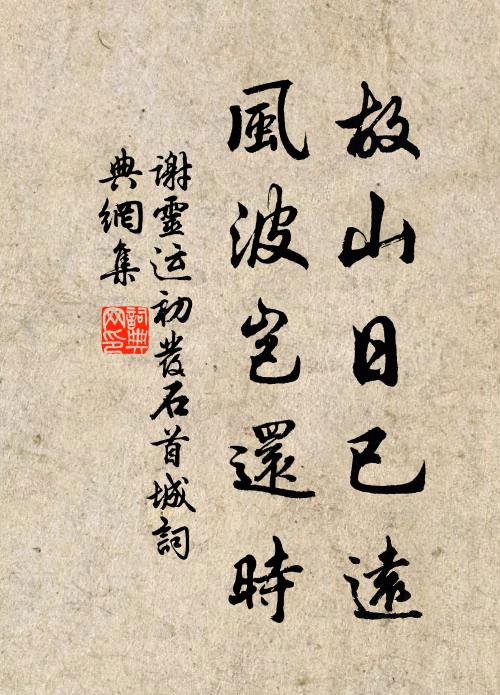 故山日已遠
風波豈還時
谢靈运初發石首城詞
典網集
詞典
网印